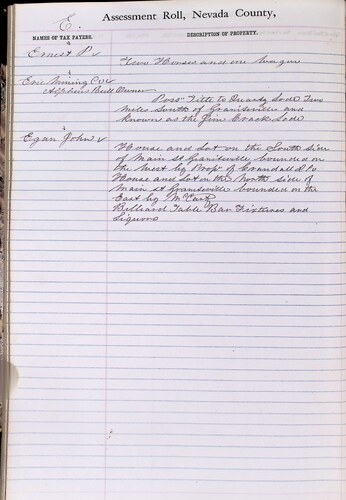 E.
Assessment Roll, Nevada County,
NAMES OF TAX PAYERS.
DESCRIPTION OF PROPERTY.
Ernest P.
Two Horses and one Wagon
Erie Mining Co
Alpheus Bull Owner
Poss" Title to Quartz Lode Two
Miles South of Graniteville and
Known as the Jim Crack Lode
Egan John
House and Lot on the South Side
of Main st Graniteville bounded on
the West by Prop" of Crandall & Co
House and Lot on the North side of
Main st Graniteville bounded on the
East by McCarty
Billiard Table Bar Fixtures and
Liquors